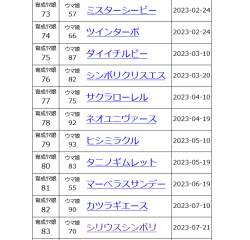 育成99順 ウマ娘
73 57 ミスターシービー 2023-02-24
育成99順 ウマ娘
74 66 ツインターボ 2023-02-24
育成99順 ウマ娘
75 87 ダイイチルビー 2023-03-10
育成99順 ウマ娘
76 82 シンボリクリスエス 2023-03-20
育成99順 ウマ娘
77 75 サクラローレル 2023-04-10
育成99順 ウマ娘
78 92 ネオユニヴァース 2023-04-19
育成99順 ウマ娘
79 93 ヒシミラクル 2023-05-10
育成99順 ウマ娘
80 83 タニノギムレット 2023-05-19
育成99順 ウマ娘
81 55 マーベラスサンデー 2023-06-19
育成99順 ウマ娘
82 90 カツラギエース 2023-07-10
育成99順 ウマ娘
83 70 シリウスシンボリ 2023-07-21